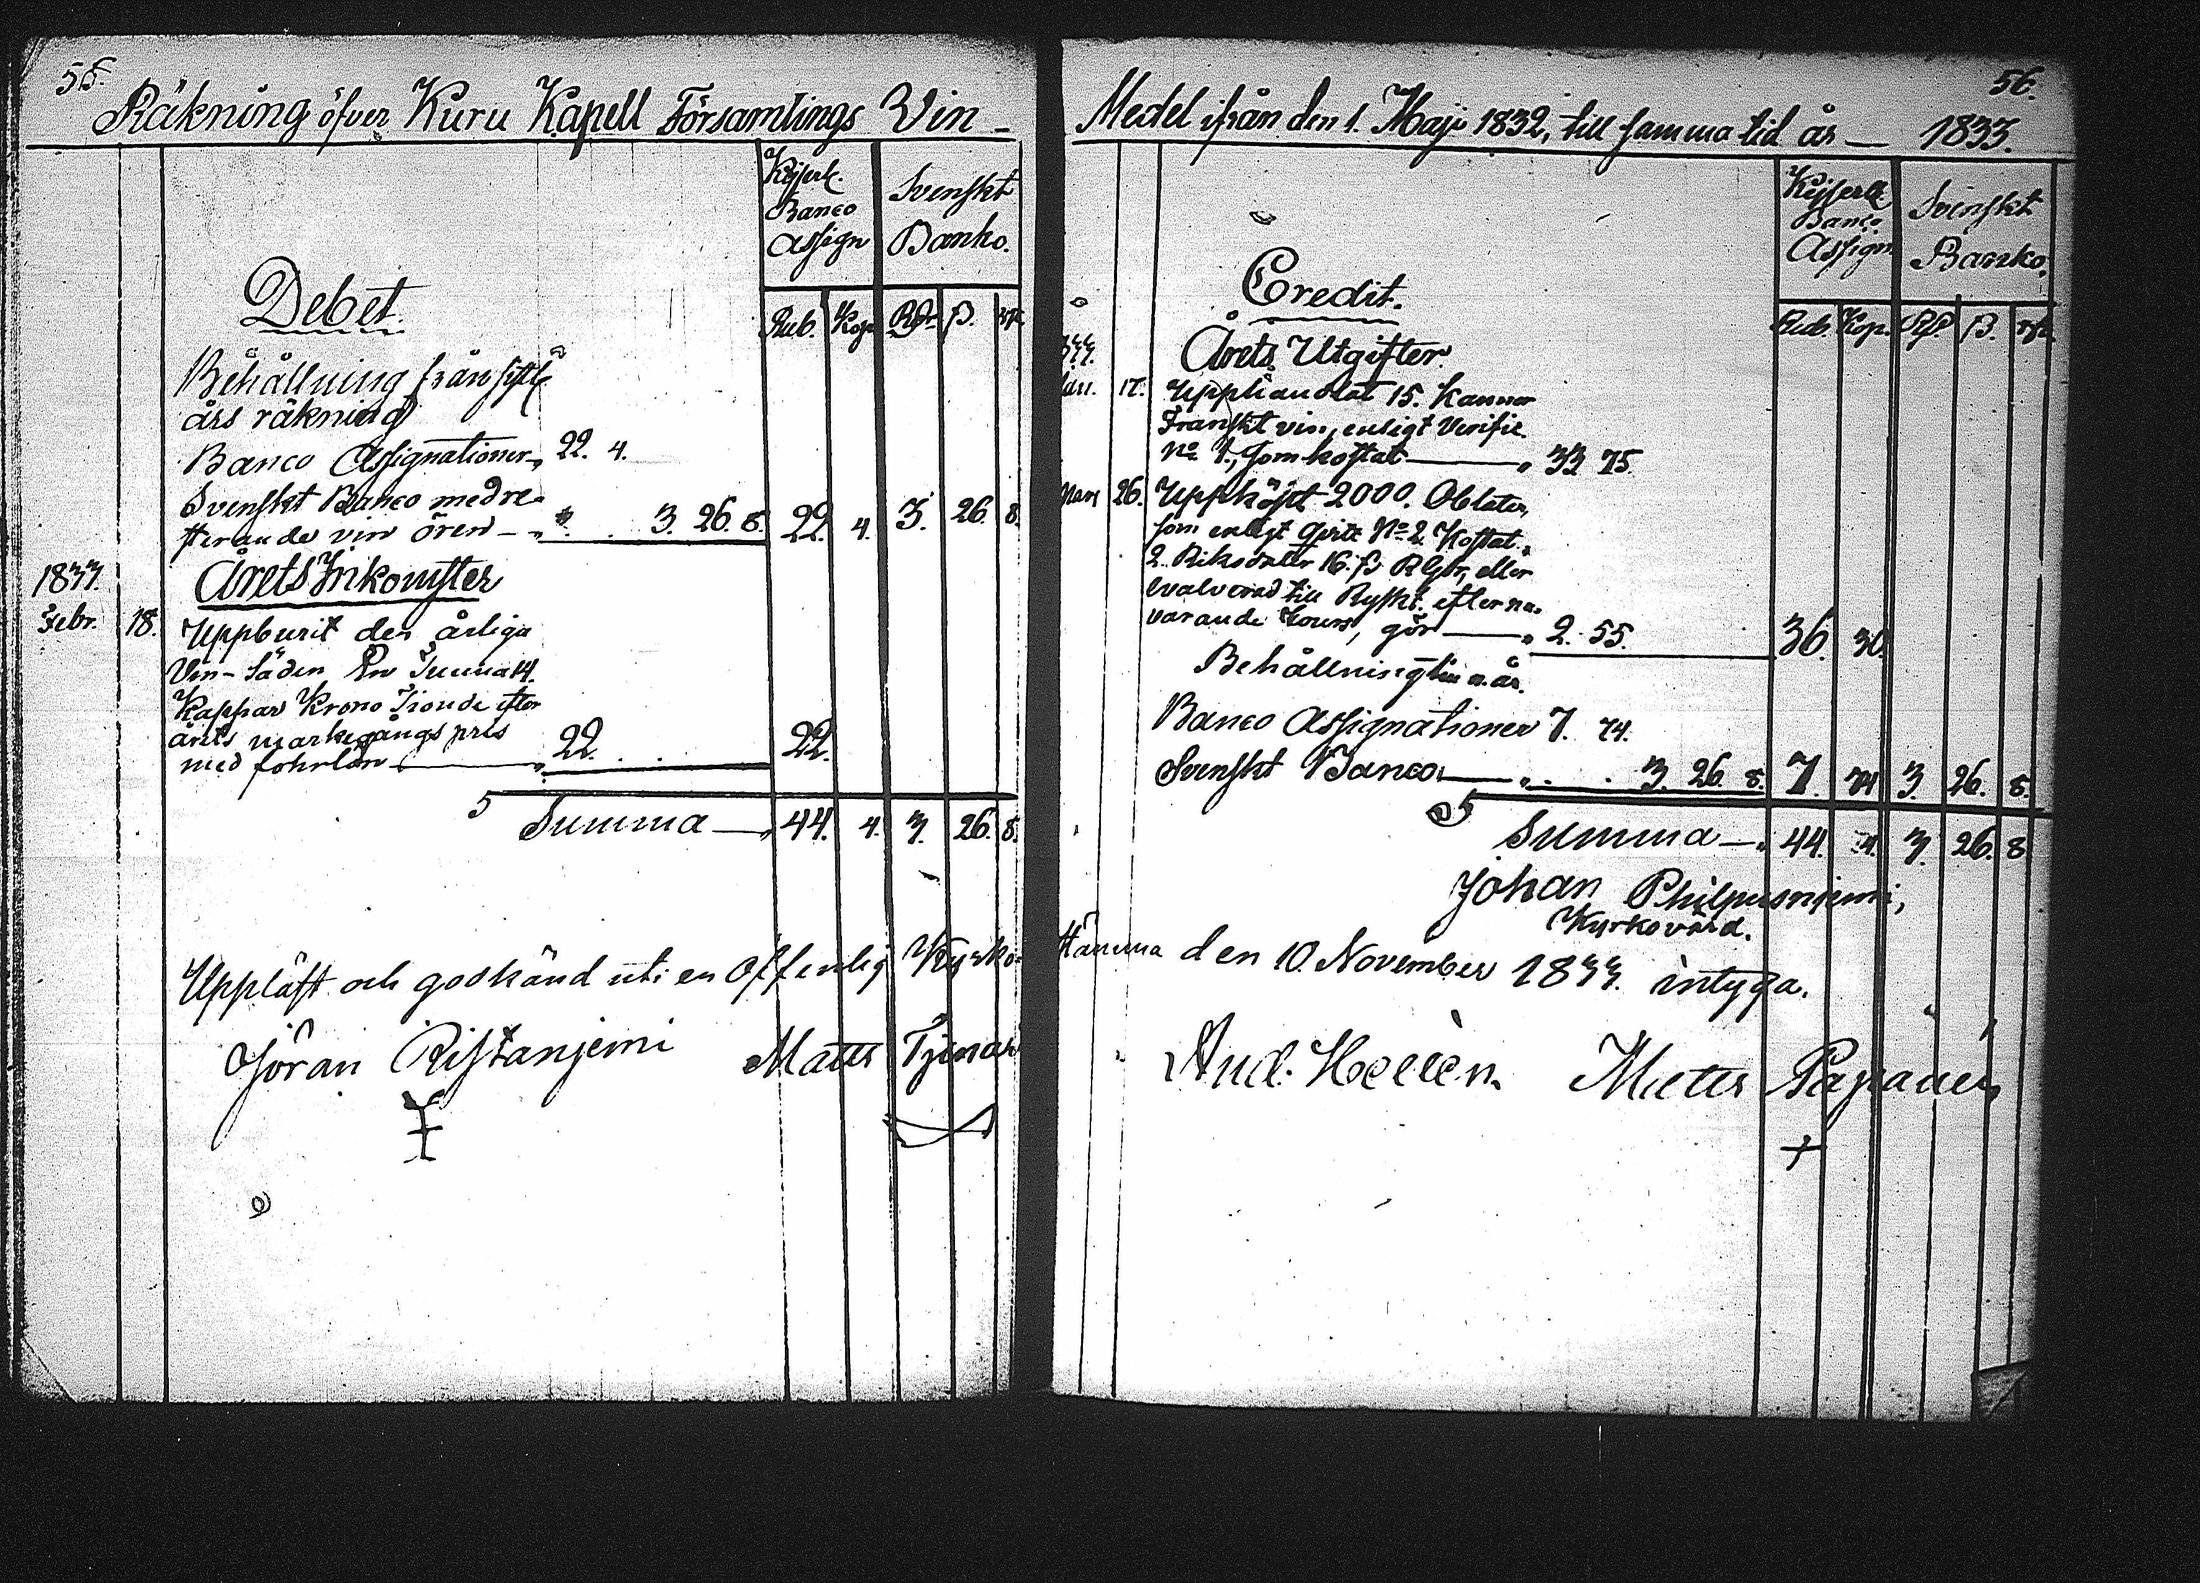 55.
Räkning öfver Kuru Kapell Församlings Vin-
Kejserl. Banco Assign
Svenskt Banko.
Debet.
Rub. Kop. Rdr β. rst.
Behållning från sistl.
års räkning
Banco Assignationer 22. 4.
Svenskt Banco med re-
sterande vin ören 3. 26. 8. 22. 4. 3. 26. 8.
1833. Årets Inkomster
Febr. 18. Uppburit den årliga
Vin-Säden En Tunna 14.
Kappar Krono Tionde efter
årets markegångs pris
med fohrlön 22. 22.
Summa 44. 4. 3. 26. 8.
Uppläst och godkänd uti en Offenlig Kyrko-
Jöran Ristanjemi Matts
56.
Medel ifrån den 1. Maji 1832, till samma tid år 1833.
Kejserl. Banco Assign
Svenskt Banko.
Credit.
Rub. Kop. Rd. β. rst.
Årets Utgifter
17. Upphandlat 15. Kannor
Franskt vin, enligt Verific.
No 1., som kostat 33 75.
Mars 26. Uppköpt 2000. Oblater,
som enligt Qvitt No 2. Kostat
2. Riksdaler 16. β. RGdr, eller
evalverad till Ryskt efter na-
varande Cours, gör 2. 55. 36. 30.
Behållning till n. år.
Banco Assignationer 7. 74.
Svenskt Banco 3. 26. 8. 7. 74 3. 26. 8.
Summa 44. 4. 3. 26. 8
Johan Philpusnjemi,
Kyrkovärd.
Stämma den 10. November 1833. intyga.
And. Matts